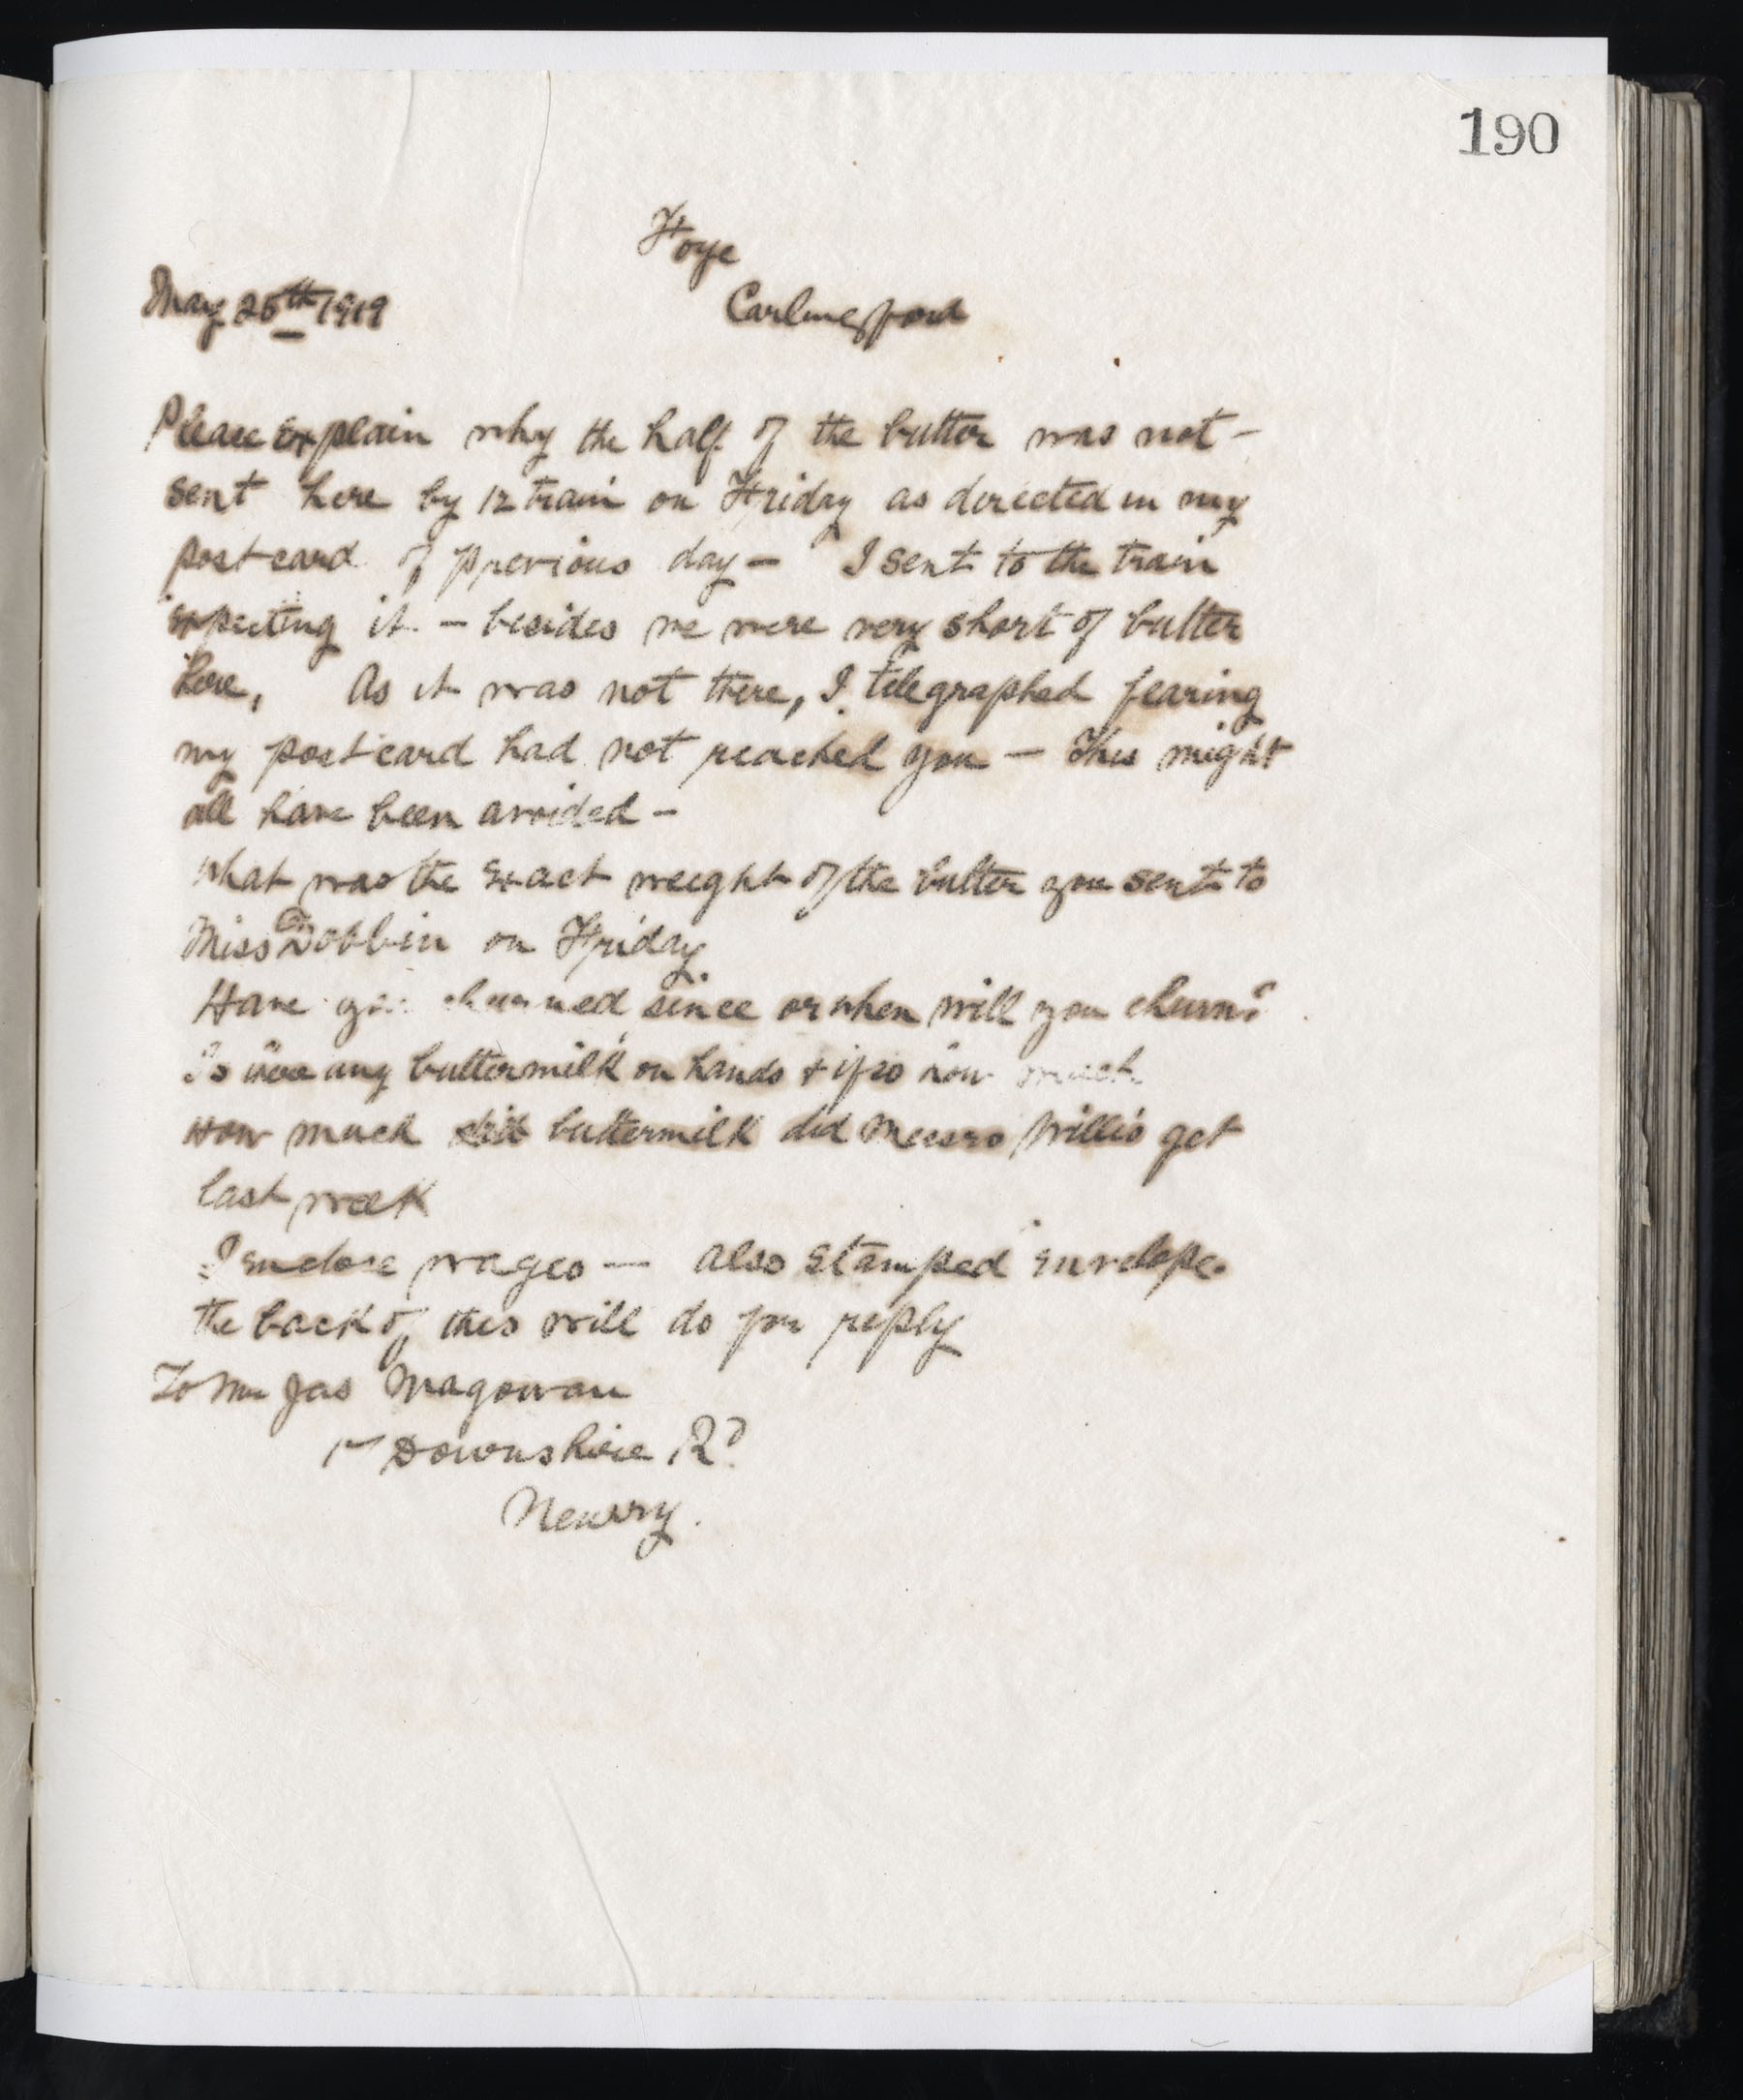 190
Foye
May 25th 1919 Carlingford
Please explain why the half of the butter was not -
sent here by 12 train on Friday as directed in my
postcard of previous day - I sent to the train
expecting it - besides we were very short of butter
here, As it was not there, I telegraphed fearing
my postcard had not reached you - This might
all have been avoided -
What was the exact weight of the butter you sent to
Miss Dobbin on Friday.
Have you churned since or when will you churn?
Is there any buttermilk on hands & if so how much
How much did buttermilk did Messrs Willis get
last week
I enclose wages - also stamped envelope.
the back of this will do for reply
To Mr Jas Magowan
Downshire Rd
Newry.